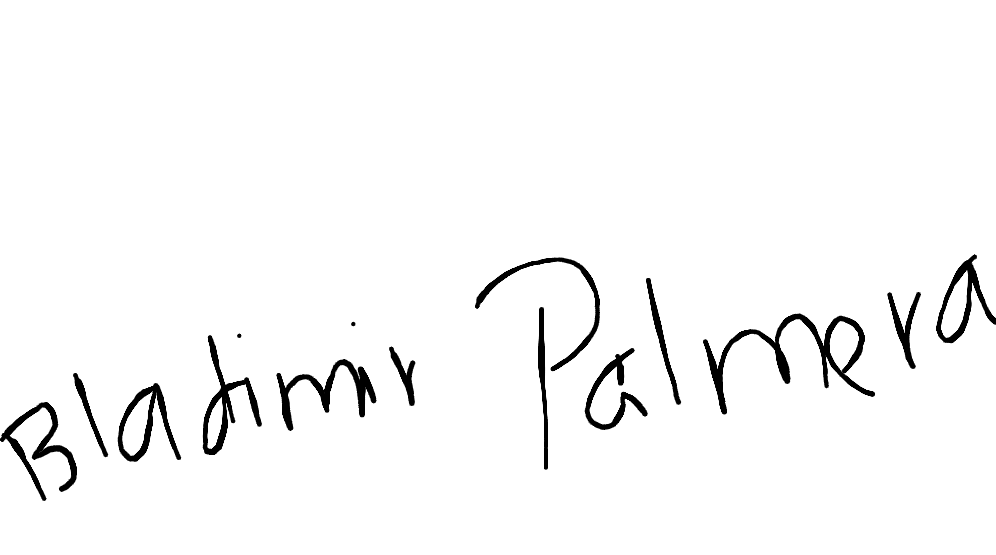 Bladimir Palmera